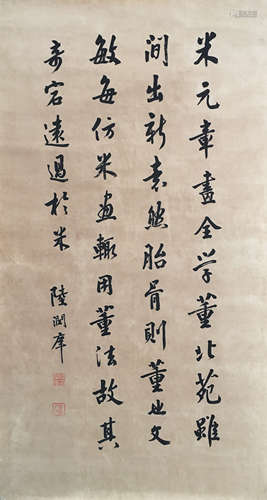 米元章畫全学董北苑雖
间出新意然胎骨則董也文
敏每仿米画輙用董法故其
奇宕遠過於米
陸潤庠